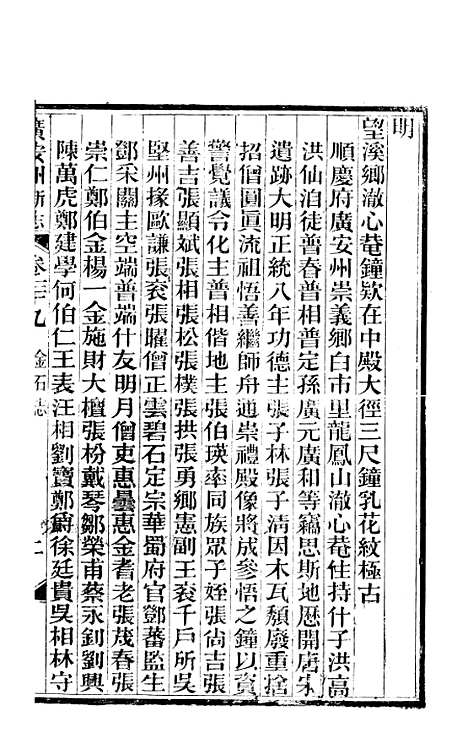 明
望溪鄉澈心菴鐘欵在中殿大徑三尺鐘乳花紋極古
順慶府廣安州崇義鄉白市里龍鳳山澈心菴住持什子洪高
洪仙洎徒普春普相普定孫廣元廣和等竊思斯地歴開唐宋
遺跡大明正統八年功德主張子林張子淸因木瓦頽廢重捨
招僧圓眞流祖悟善繼師舟通崇禮殿像將成參悟之鐘以資
警覺議令化主普相偕地主張伯瑛率同族眾子姪張尙吉張
善吉張顯斌張相張松張樸張拱張勇鄉憲副王袞千戶所吳
堅州掾歐謙張袞張曜僧正雲碧石定宗華蜀府官鄧蕃監生
鄧采關主空端普端什友明月僧吏惠曇惠金耆老張茂春張
崇仁鄭伯金楊一金施財大檀張枌戴琴鄒榮甫蔡永釗劉興
陳萬虎鄭建學何伯仁王表汪相劉寶鄭爵徐廷貴吳相林守
廣安州新志 卷三十九 金石志 二